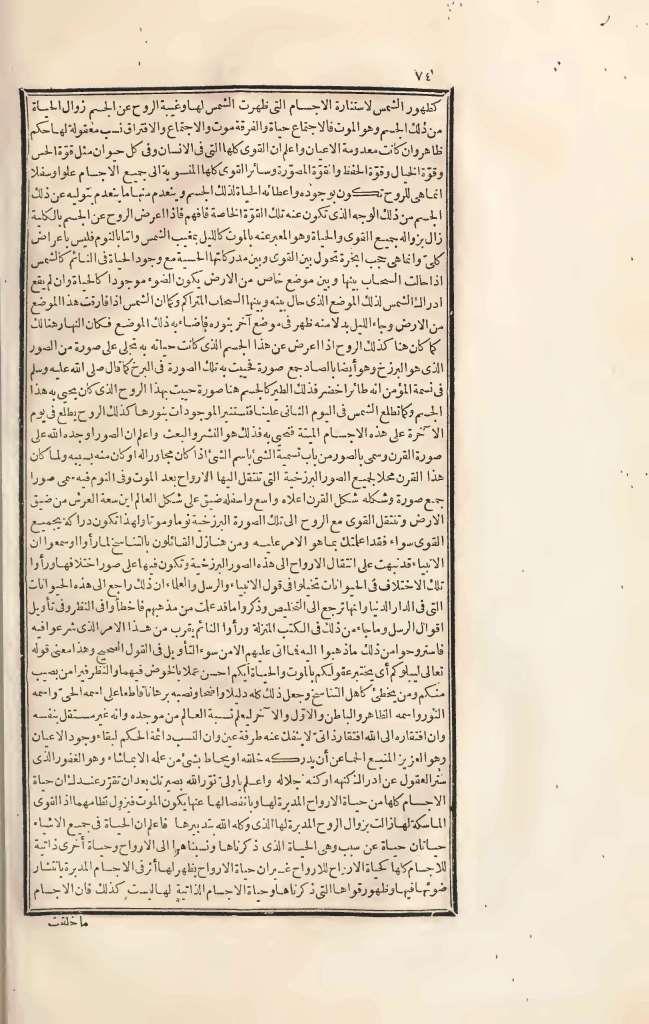 ٧٤
كظهور الشمس لاستنارة الاجسام التي ظهرت الشمس لها وغيبة الروح عن الجسم زوال الحياة
من ذلك الجسم وهو الموت فالاجتماع حياة والفرقة موت والاجتماع والافتراق نسب معقولة لها حكم
ظاهر وان كانت معدومة الاعيان واعلم ان القوى كلها التي في الانسان وفي كل حيوان مثل قوّة الحس
وقوّة الخيال وقوّة الحفظ والقوّة المصوّرة وسائر القوى كلها المنسوبة الى جميع الاجسام علوا وسفلا
انما هي للروح تكون بوجوده واعطائه الحياة لذلك الجسم وينعدم منها ما ينعدم بتوليه عن ذلك
الجسم من ذلك الوجه الذي تكون عنه تلك القوّة الخاصة فافهم فاذا اعرض الروح عن الجسم بالكلية
زال بزواله جميع القوى والحياة وهو المعبر عنه بالموت كالليل بمغيب الشمس واما بالنوم فليس باعراض
كليّ وانما هي حجب ابخرة تحول بين القوى وبين مدركاتها الحسية مع وجود الحياة في النائم كالشمس
اذا حالت السحاب بينها وبين موضع خاص من الارض يكون الضوء موجودا كالحياة وان لم يقع
ادراك الشمس لذلك الموضع الذي حال بينه وبينها السحاب المتراكم وكما ان الشمس اذا فارقت هذا الموضع
من الارض وجاء الليل بدلا منه ظهر في موضع آخر بنوره فاضاء به ذلك الموضع فكان النهار هنالك
كما كان هنا كذلك الروح اذا اعرض عن هذا الجسم الذي كانت حياته به تجلى على صورة من الصور
الذي هو البرزخ وهو أيضا بالصاد جمع صورة فحييت به تلك الصورة في البرزخ كما قال صلى الله عليه وسلم
في نسمة المؤمن انه طائر اخضر فذلك الطير كالجسم هنا صورة حييت بهذا الروح الذي كان يحيى به هذا
الجسم وكما تطلع الشمس في اليوم الثاني علينا فتستنير الموجودات بنورها كذلك الروح يطلع في يوم
الآخرة على هذه الاجسام الميتة فتحيى به فذلك هو النشر والبعث واعلم ان الصور اوجده الله على
صورة القرن وسمي بالصور من باب تسمية الشيء باسم الشيء اذا كان مجاورا له او كان منه بسببه ولما كان
هذا القرن محلا لجميع الصور البرزخية التي تنتقل اليها الارواح بعد الموت وفي النوم فيه سمي صورا
جمع صورة وشكله شكل القرن اعلاه واسع واسفله ضيق على شكل العالم اين سعة العرش من ضيق
الارض وتنتقل القوى مع الروح الى تلك الصورة البرزخية نوما وموتا ولهذا تكون دراكة بجميع
القوى سواء فقد اعلمتك بما هو الامر عليه ومن هنا زل القائلون بالتناسخ لما رأوا او سمعوا ان
الانبياء قد نبهت على انتقال الارواح الى هذه الصور البرزخية وتكون فيها على صور اخلاقها ورأوا
تلك الاخلاق في الحيوانات تخيلوا في قول الانبياء والرسل والعلماء ان ذلك راجع الى هذه الحيوانات
التي في الدار الدنيا وانها ترجع الى التخليص وذكروا ما قد علمت من مذهبهم فأخطأوا في النظر وفي تأويل
اقوال الرسل وما جاء من ذلك في الكتب المنزلة ورأوا النائم يقرب من هذا الامر الذي شرعوا فيه
فاستروحوا من ذلك ما ذهبوا اليه فما اتى عليهم الا من سوء التأويل في القول الصحيح وهذا معنى قوله
تعالى ليبلوكم أي يختبر عقولكم بالموت والحياة أيكم احسن عملا بالخوض فيهما والنظر فيرا من يصيب
منكم ومن يخطئ كأهل التناسخ وجعل ذلك كله دليلا واضحا ونصبه برهانا قاطعا على اسمه الحيّ واسمه
النور واسمه الظاهر والباطن والاوّل والآخر ليعلم نسبة العالم من موجده وانه غير مستقل بنفسه
وان افتقاره الى الله افتقار ذاتيّ لا ينفك عنه طرفة عين وان النسب دائمة الحكم لبقاء وجود الاعيان
وهو العزيز المنيع الحما عن أن يدركه خلقه او يحاط بشئ من علمه الا بما شاء وهو الغفور الذي
ستر العقول عن ادراك كنهه او كنه جلاله واعلم يا وليّ نوّر الله بصيرتك بعد ان تقرّر عندك ان حياة
الاجسام كلها من حياة الارواح المدبرة لها وبانفصالها عنها يكون الموت فيزول نظامها اذ القوى
الماسكة لها زالت بزوال الروح المدبر لها الذي وكله الله بتدبيرها فاعلم ان الحياة في جميع الاشياء
حياتان حياة عن سبب وهي الحياة الذي ذكرناها ونسبناها الى الارواح وحياة أخرى ذاتية
للاجسام كلها كحياة الارواح للارواح غير ان حياة الارواح يظهر لها أثر في الاجسام المدبرة بانتشار
ضوئها فيها وظهور قواها التي ذكرناها وحياة الاجسام الذاتية لها ليست كذلك فان الاجسام
ما خلقت